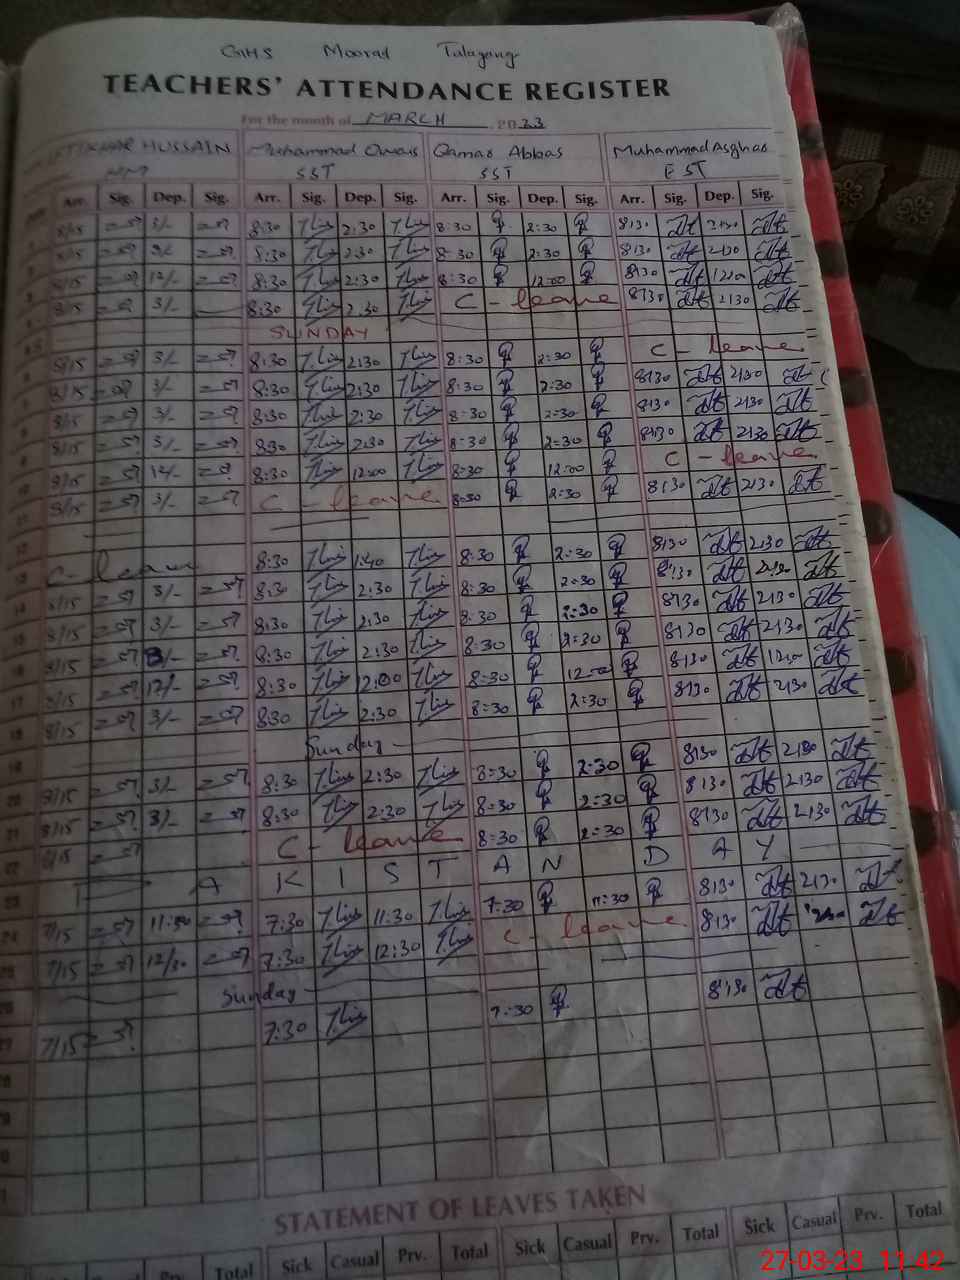 GHS Moorad Talagang
TEACHERS' ATTENDANCE REGISTER
For the month of MARCH, 2023
IFTIKHAR HUSSAIN Muhammad Owais Qamar Abbas Muhammad Asghar
SST SST EST
Arr. Sig. Dep. Sig. Arr. Sig. Dep. Sig. Arr. Sig. Dep. Sig. Arr. Sig. Dep. Sig.
8/15 3/- 8:30 2:30 8:30 2:30 8:30 2:30
8/15 3/- 8:30 2:30 8:30 2:30 8:30 2:30
8/15 12/- 8:30 2:30 8:30 12:00 8:30 12:00
8/15 3/- 8:30 2:30 C - leave 8:30 2:30
SUNDAY
8/15 3/- 8:30 2:30 8:30 2:30 C - leave
8/15 3/- 8:30 2:30 8:30 2:30 8:30 2:30
8/15 3/- 8:30 2:30 8:30 2:30 8:30 2:30
8/15 3/- 8:30 2:30 8:30 2:30 8:30 2:30
8/15 12/- 8:30 12:00 8:30 12:00 C - leave
8/15 3/- C - leave 8:30 2:30 8:30 2:30
C - leave 8:30 1:40 8:30 2:30 8:30 2:30
8/15 3/- 8:30 2:30 8:30 2:30 8:30 2:30
8/15 3/- 8:30 2:30 8:30 2:30 8:30 2:30
8/15 3/- 8:30 2:30 8:30 2:30 8:30 2:30
8/15 12/- 8:30 12:00 8:30 12:00 8:30 12:00
8/15 3/- 8:30 2:30 8:30 2:30 8:30 2:30
Sunday
8/15 3/- 8:30 2:30 8:30 2:30 8:30 2:30
8/15 3/- 8:30 2:30 8:30 2:30 8:30 2:30
8/15 C - leave 8:30 2:30 8:30 2:30
P A K I S T A N D A Y
7/15 11:30 7:30 11:30 7:30 11:30 8:30 2:30
7/15 12/30 7:30 12:30 C - leave 8:30
Sunday
7/15 7:30 7:30 8:30
STATEMENT OF LEAVES TAKEN
Total Sick Casual Prv. Total Sick Casual Prv. Total Sick Casual Prv. Total
27-03-23 11:42